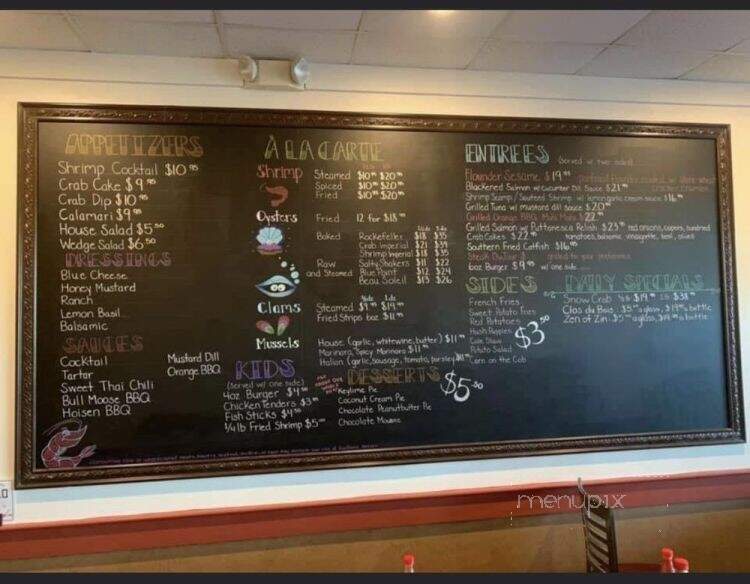 APPETIZERS
Shrimp Cocktail $10.95
Crab Cake $9.95
Crab Dip $10.95
Calamari $9.95
House Salad $5.50
Wedge Salad $6.50
DRESSINGS
Blue Cheese
Honey Mustard
Ranch
Lemon Basil
Balsamic
SAUCES
Cocktail
Tartar
Sweet Thai Chili
Bull Moose BBQ
Hoisen BBQ
Mustard Dill
Orange BBQ
À LA CARTE
Shrimp
Steamed $10.95 $20.95
Spiced $10.95 $20.95
Fried $10.95 $20.95
Oysters
Fried 12 for $13
Baked Rockefeller $18 $35
Crab Imperial $21 $39
Shrimp Imperial $18 $35
Raw Salty Shakers $11 $22
and Steamed Blue Point $12 $24
Beau Soleil $13 $26
Clams
Steamed $9.95 $19.95
Fried Strips 6oz $11.95
Mussels
House (garlic, white wine, butter) $11.95
Marinara, Spicy Marinara $11.95
Italian (garlic, sausage, tomato, parsley)
KIDS
(served w/ one side)
4oz Burger $4.50
Chicken Tenders $3
Fish Sticks $4.50
1/4 lb Fried Shrimp $5
DESSERTS $5.50
Keylime Pie
Coconut Cream Pie
Chocolate Peanutbutter Pie
Chocolate Mousse
ENTREES (served w/ two sides)
Flounder Sesame $19.95
Blackened Salmon w/ cucumber Dill Sauce $21.95
Shrimp Scampi / Sauteed Shrimp w/ lemon garlic cream sauce $16.95
Grilled Tuna w/ mustard dill sauce $20.95
Grilled Orange BBQ Mahi Mahi $22
Grilled Salmon w/ Puttanesca Relish $23.95 red onions, capers, sundried
Crab Cakes $22.95 tomatoes, balsamic vinaigrette, basil, olives
Southern Fried Catfish $16.95
grilled to your preference
6oz Burger $9.95 w/ one side
SIDES
French Fries
Sweet Potato Fries
Red Potatoes
Hush Puppies
Cole Slaw
Potato Salad
Corn on the Cob
$3.50
DAILY SPECIALS
Snow Crab
Clos du Bois
Zen of Zin
menupix